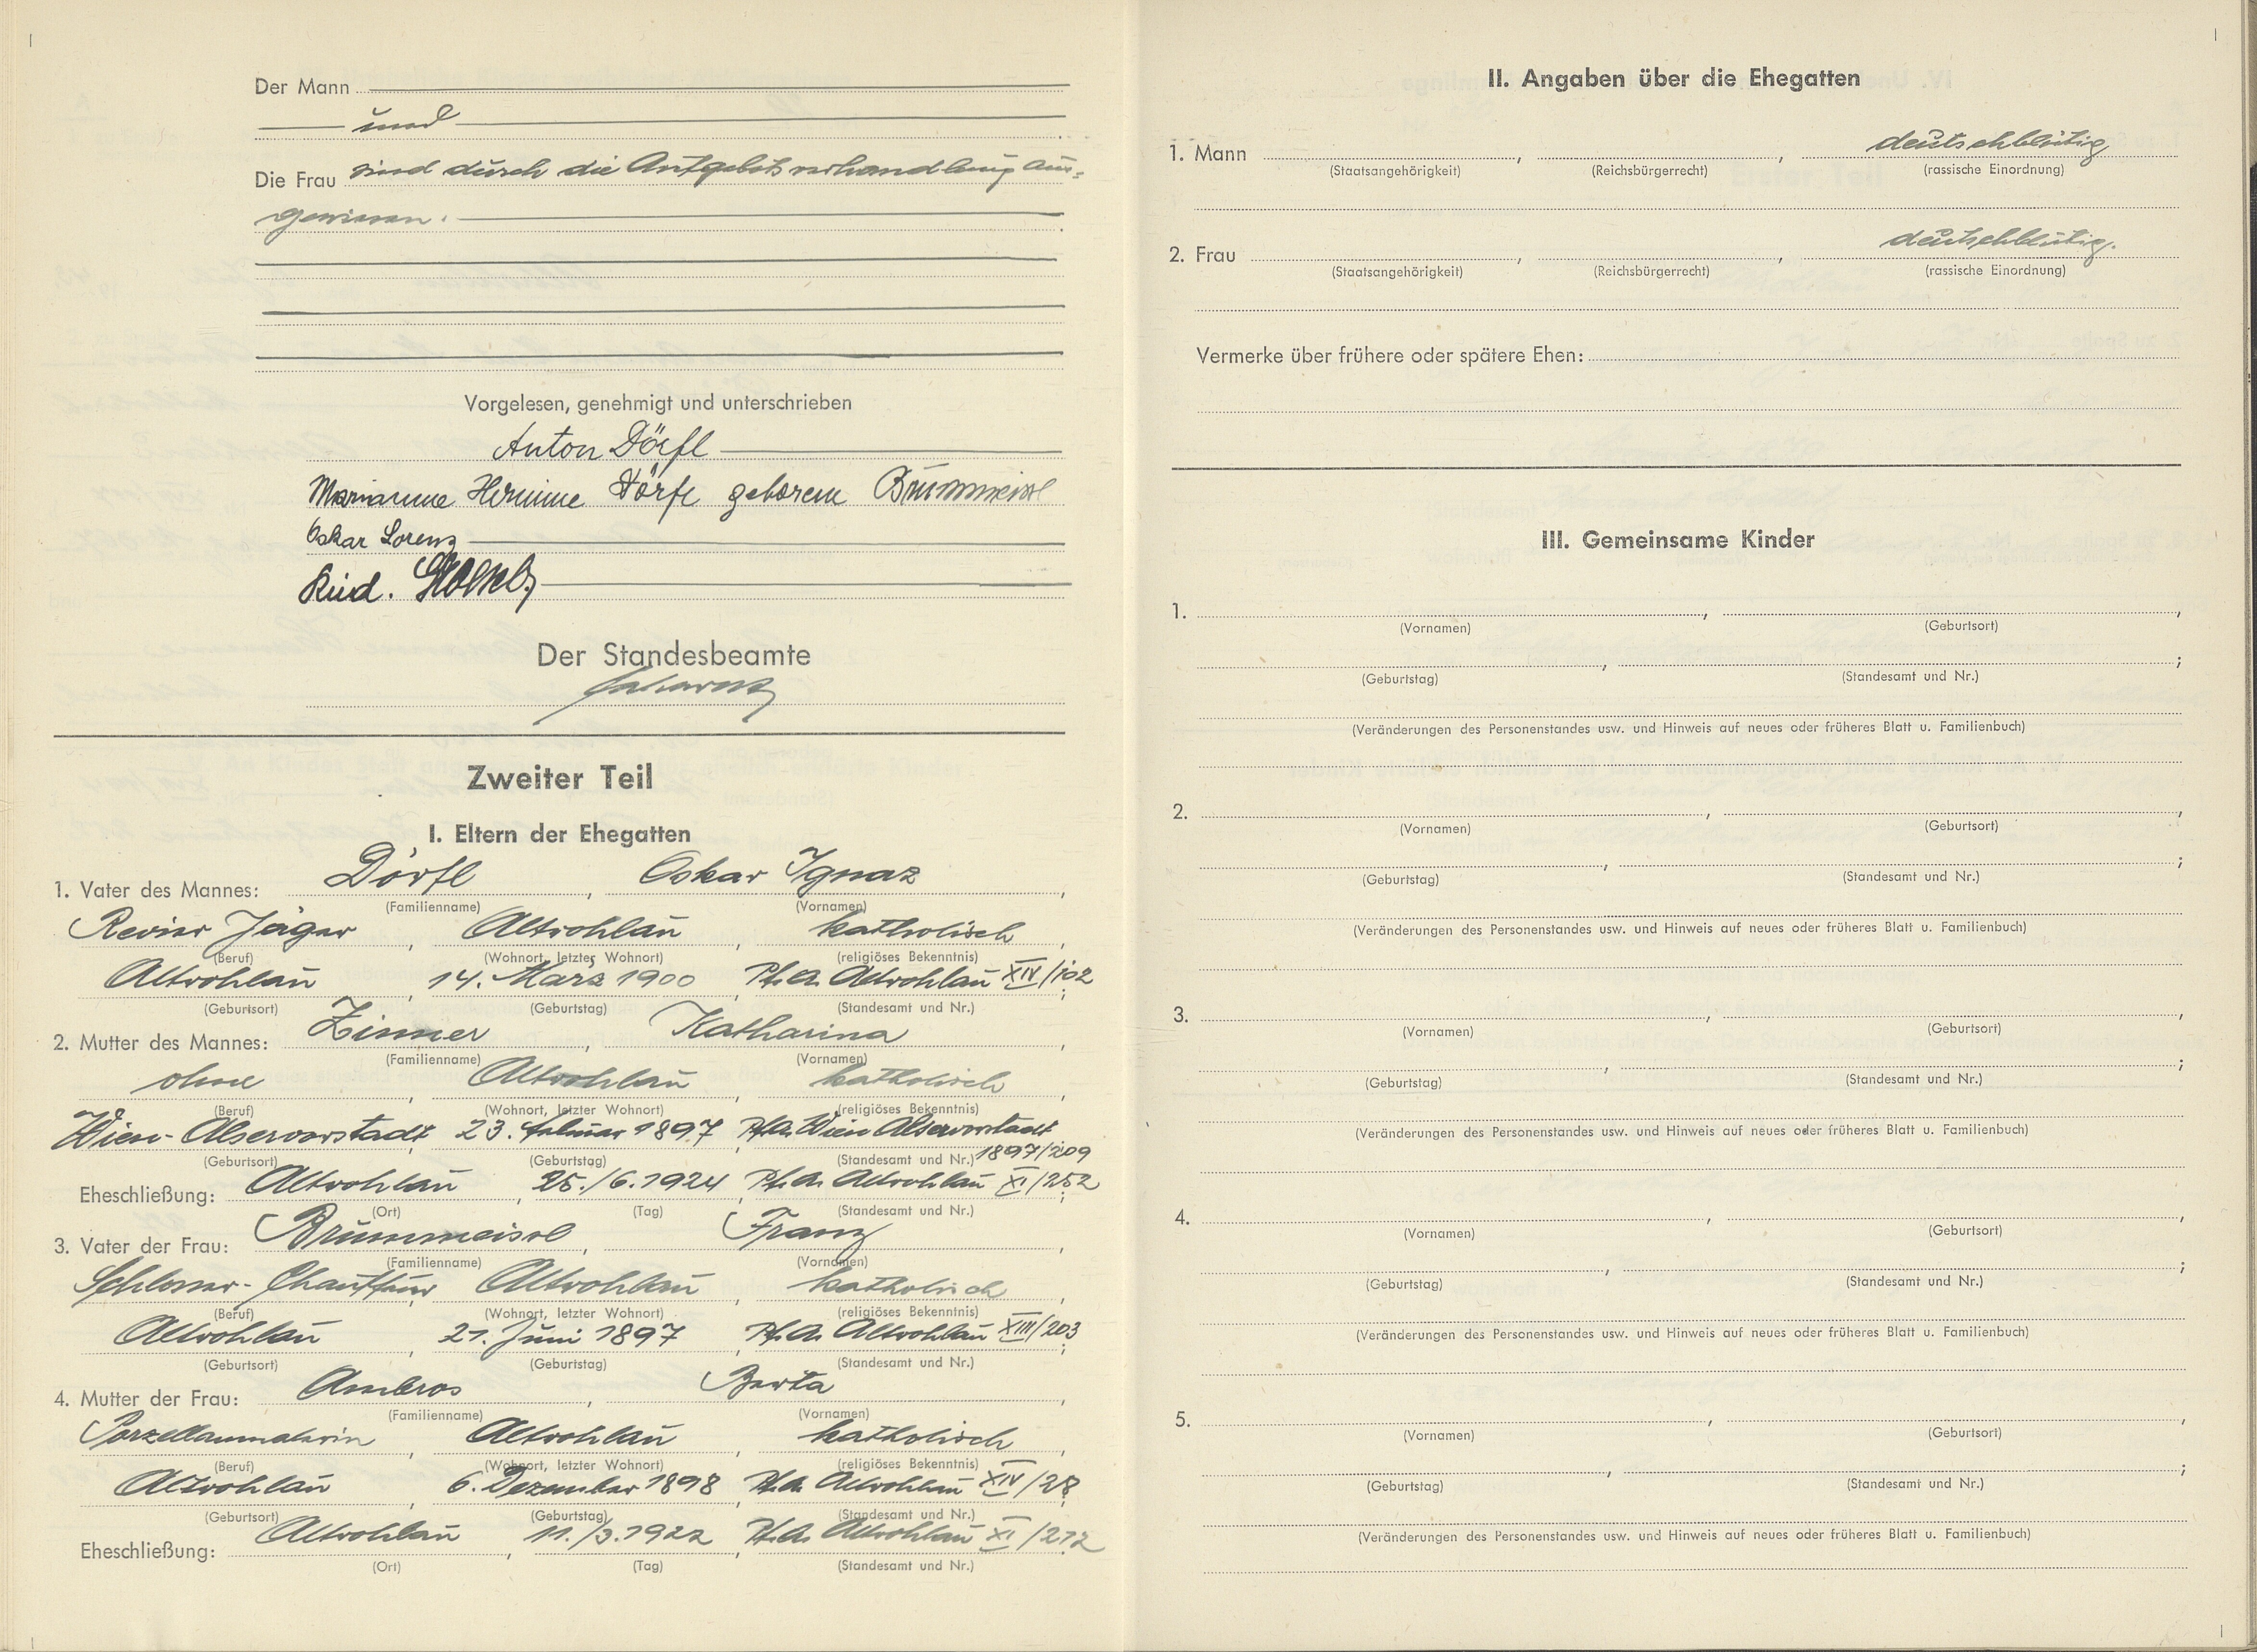 Der Mann
und
Die Frau sind durch die Aufgebotsverhandlung aus-
gewiesen.
Vorgelesen, genehmigt und unterschrieben
Anton Dörfl
Marianne Hermine Dörfl geborene Brümmeisl
Oskar Lorenz
Rud.
Der Standesbeamte
Zweiter Teil
I. Eltern der Ehegatten
1. Vater des Mannes: Dörfl, Oskar Ignaz,
(Familienname) (Vornamen)
Revier Jäger, Altrohlau, katholisch,
(Beruf) (Wohnort, letzter Wohnort) (religiöses Bekenntnis)
Altrohlau, 14. März 1900, Pf.A. Altrohlau XIV/102;
(Geburtsort) (Geburtstag) (Standesamt und Nr.)
2. Mutter des Mannes: Zimmer, Katharina,
(Familienname) (Vornamen)
ohne, Altrohlau, katholisch,
(Beruf) (Wohnort, letzter Wohnort) (religiöses Bekenntnis)
Wien-Alservorstadt, 23. Februar 1897, Pf.A. Wien Alservorstadt
(Geburtsort) (Geburtstag) (Standesamt und Nr.) 1897/209
Eheschließung: Altrohlau, 25./6.1924, Pf.A. Altrohlau XI/252;
(Ort) (Tag) (Standesamt und Nr.)
3. Vater der Frau: Brümmeisl, Franz,
(Familienname) (Vornamen)
Schlosser-Chauffeur, Altrohlau, katholisch,
(Beruf) (Wohnort, letzter Wohnort) (religiöses Bekenntnis)
Altrohlau, 21. Juni 1897, Pf.A. Altrohlau XIII/203;
(Geburtsort) (Geburtstag) (Standesamt und Nr.)
4. Mutter der Frau: Ambros, Berta,
(Familienname) (Vornamen)
Porzellanmalerin, Altrohlau, katholisch,
(Beruf) (Wohnort, letzter Wohnort) (religiöses Bekenntnis)
Altrohlau, 6. Dezember 1898, Pf.A. Altrohlau XIV/28;
(Geburtsort) (Geburtstag) (Standesamt und Nr.)
Eheschließung: Altrohlau, 11./3.1922, Pf.A. Altrohlau XI/212
(Ort) (Tag) (Standesamt und Nr.)
II. Angaben über die Ehegatten
1. Mann , , deutschblütig
(Staatsangehörigkeit) (Reichsbürgerrecht) (rassische Einordnung)
2. Frau , , deutschblütig.
(Staatsangehörigkeit) (Reichsbürgerrecht) (rassische Einordnung)
Vermerke über frühere oder spätere Ehen:
III. Gemeinsame Kinder
1. , ,
(Vornamen) (Geburtsort)
, ;
(Geburtstag) (Standesamt und Nr.)
(Veränderungen des Personenstandes usw. und Hinweis auf neues oder früheres Blatt u. Familienbuch)
2. , ,
(Vornamen) (Geburtsort)
, ;
(Geburtstag) (Standesamt und Nr.)
(Veränderungen des Personenstandes usw. und Hinweis auf neues oder früheres Blatt u. Familienbuch)
3. , ,
(Vornamen) (Geburtsort)
, ;
(Geburtstag) (Standesamt und Nr.)
(Veränderungen des Personenstandes usw. und Hinweis auf neues oder früheres Blatt u. Familienbuch)
4. , ,
(Vornamen) (Geburtsort)
, ;
(Geburtstag) (Standesamt und Nr.)
(Veränderungen des Personenstandes usw. und Hinweis auf neues oder früheres Blatt u. Familienbuch)
5. , ,
(Vornamen) (Geburtsort)
, ;
(Geburtstag) (Standesamt und Nr.)
(Veränderungen des Personenstandes usw. und Hinweis auf neues oder früheres Blatt u. Familienbuch)